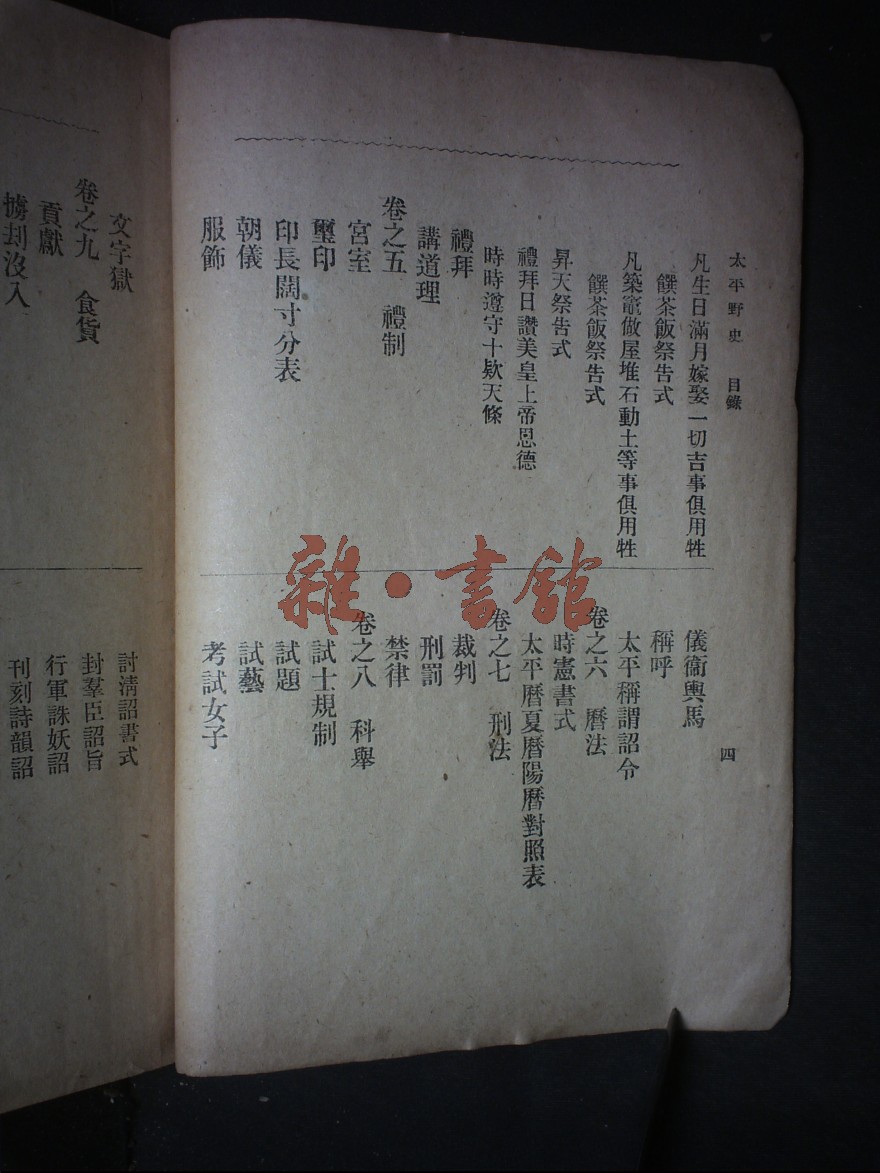 太平野史　目錄
四
凡生日滿月嫁娶一切吉事俱用牲
饌茶飯祭告式
凡築竈做屋堆石動土等事俱用牲
饌茶飯祭告式
昇天祭告式
禮拜日讚美皇上帝恩德
時時遵守十款天條
禮拜
講道理
卷之五　禮制
宮室
璽印
印長闊寸分表
朝儀
服飾
儀衞輿馬
稱呼
太平稱謂詔令
卷之六　曆法
時憲書式
太平曆夏曆陽曆對照表
卷之七　刑法
裁判
刑罰
禁律
卷之八　科舉
試士規制
試題
試藝
考試女子
文字獄
卷之九　食貨
貢獻
擄刦沒入
討淸詔書式
封羣臣詔旨
行軍誅妖詔
刊刻詩韻詔
雜·書館